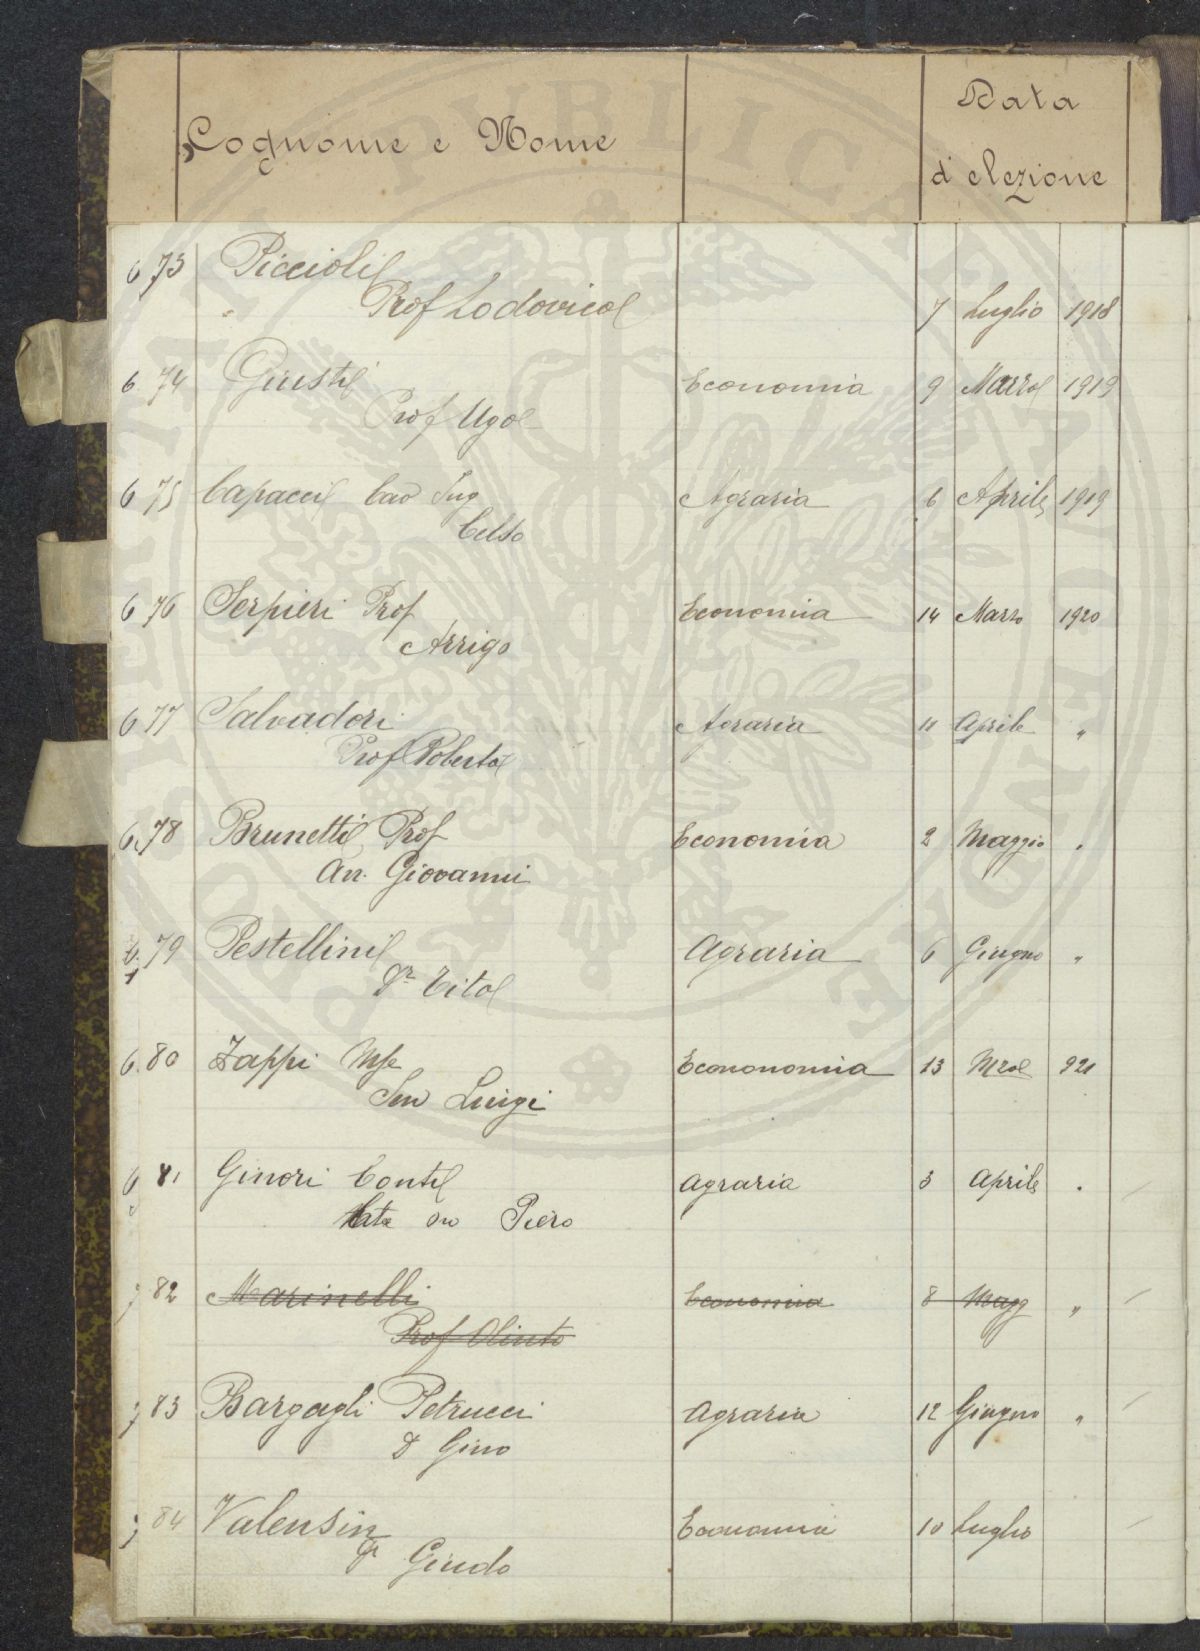 Cognome e Nome
Data
d'elezione
6 73 Piccioli
Prof Lodovico 7 Luglio 1918
6 74 Giusti Economia 9 Marzo 1919
Prof Ugo
6 75 Capacci Cav Ing Agraria 6 Aprile 1919
Celso
6 76 Serpieri Prof Economia 14 Marzo 1920
Arrigo
6 77 Salvadori Agraria 11 Aprile "
Prof Roberto
6 78 Brunetti Prof Economia 2 Maggio "
An. Giovanni
79 Pestellini Agraria 6 Giugno "
Dr Tito
6 80 Zappi Mse Econonomia 13 Mzo 921
Sen Luigi
6 81 Ginori Conti Agraria 3 Aprile "
Piero
82 Marinelli Economia 8 Magg "
Prof Olinto
83 Bargagli Petrucci Agraria 12 Giugno "
D Gino
84 Valensin Economia 10 Luglio
Dr Guido